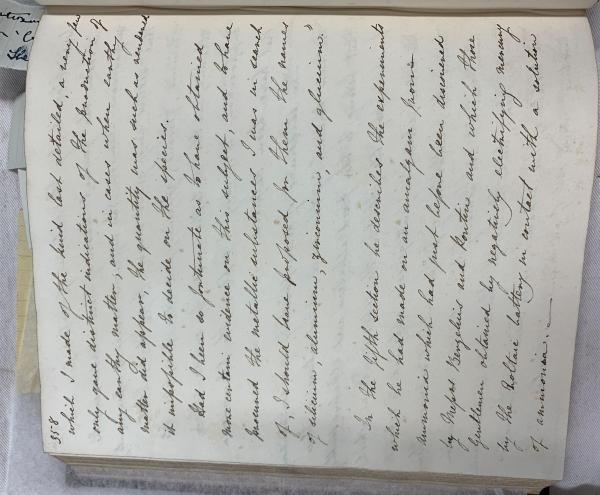 358
which I made of the kind last detailed a very few
only gave distinct indications of the production of
any earthy matter, and in cases when earthy
matter did appear, the quantity was such as rendered
it impossible to decide on the species.
Had I been so fortunate as to have obtained
more certain evidence on this subject, and to have
procured the metallic substances I was in search
of, I should have proposed for them the names
of silicium, alumium, zirconium, and glucium."
In the fifth section he describes the experiments
which he had made on an amalgam from
Ammonia which had just before been discovered
by Messrs Berzelius and Pontin and which those
gentlemen obtained by negatively electrifying mercury
by the Voltaic battery in contact with a solution
of ammonia.